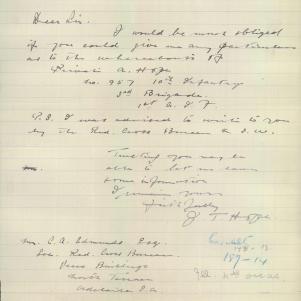 Dear Sir.
I would be most obliged
if you could give me any particulars
as to the whereabouts of
Private A. Hope
no. 957 10th Infantry
3rd Brigade.
1st A.I.F.
P.S. I was advised to write to you
by the Red Cross Bureau
Trusting you may be
able to let me have
some information
I remain yours
faithfully
J T Hope
C. A. Edmunds Esq.
Sec. Red Cross Bureau
Buildings
Adelaide S.A.